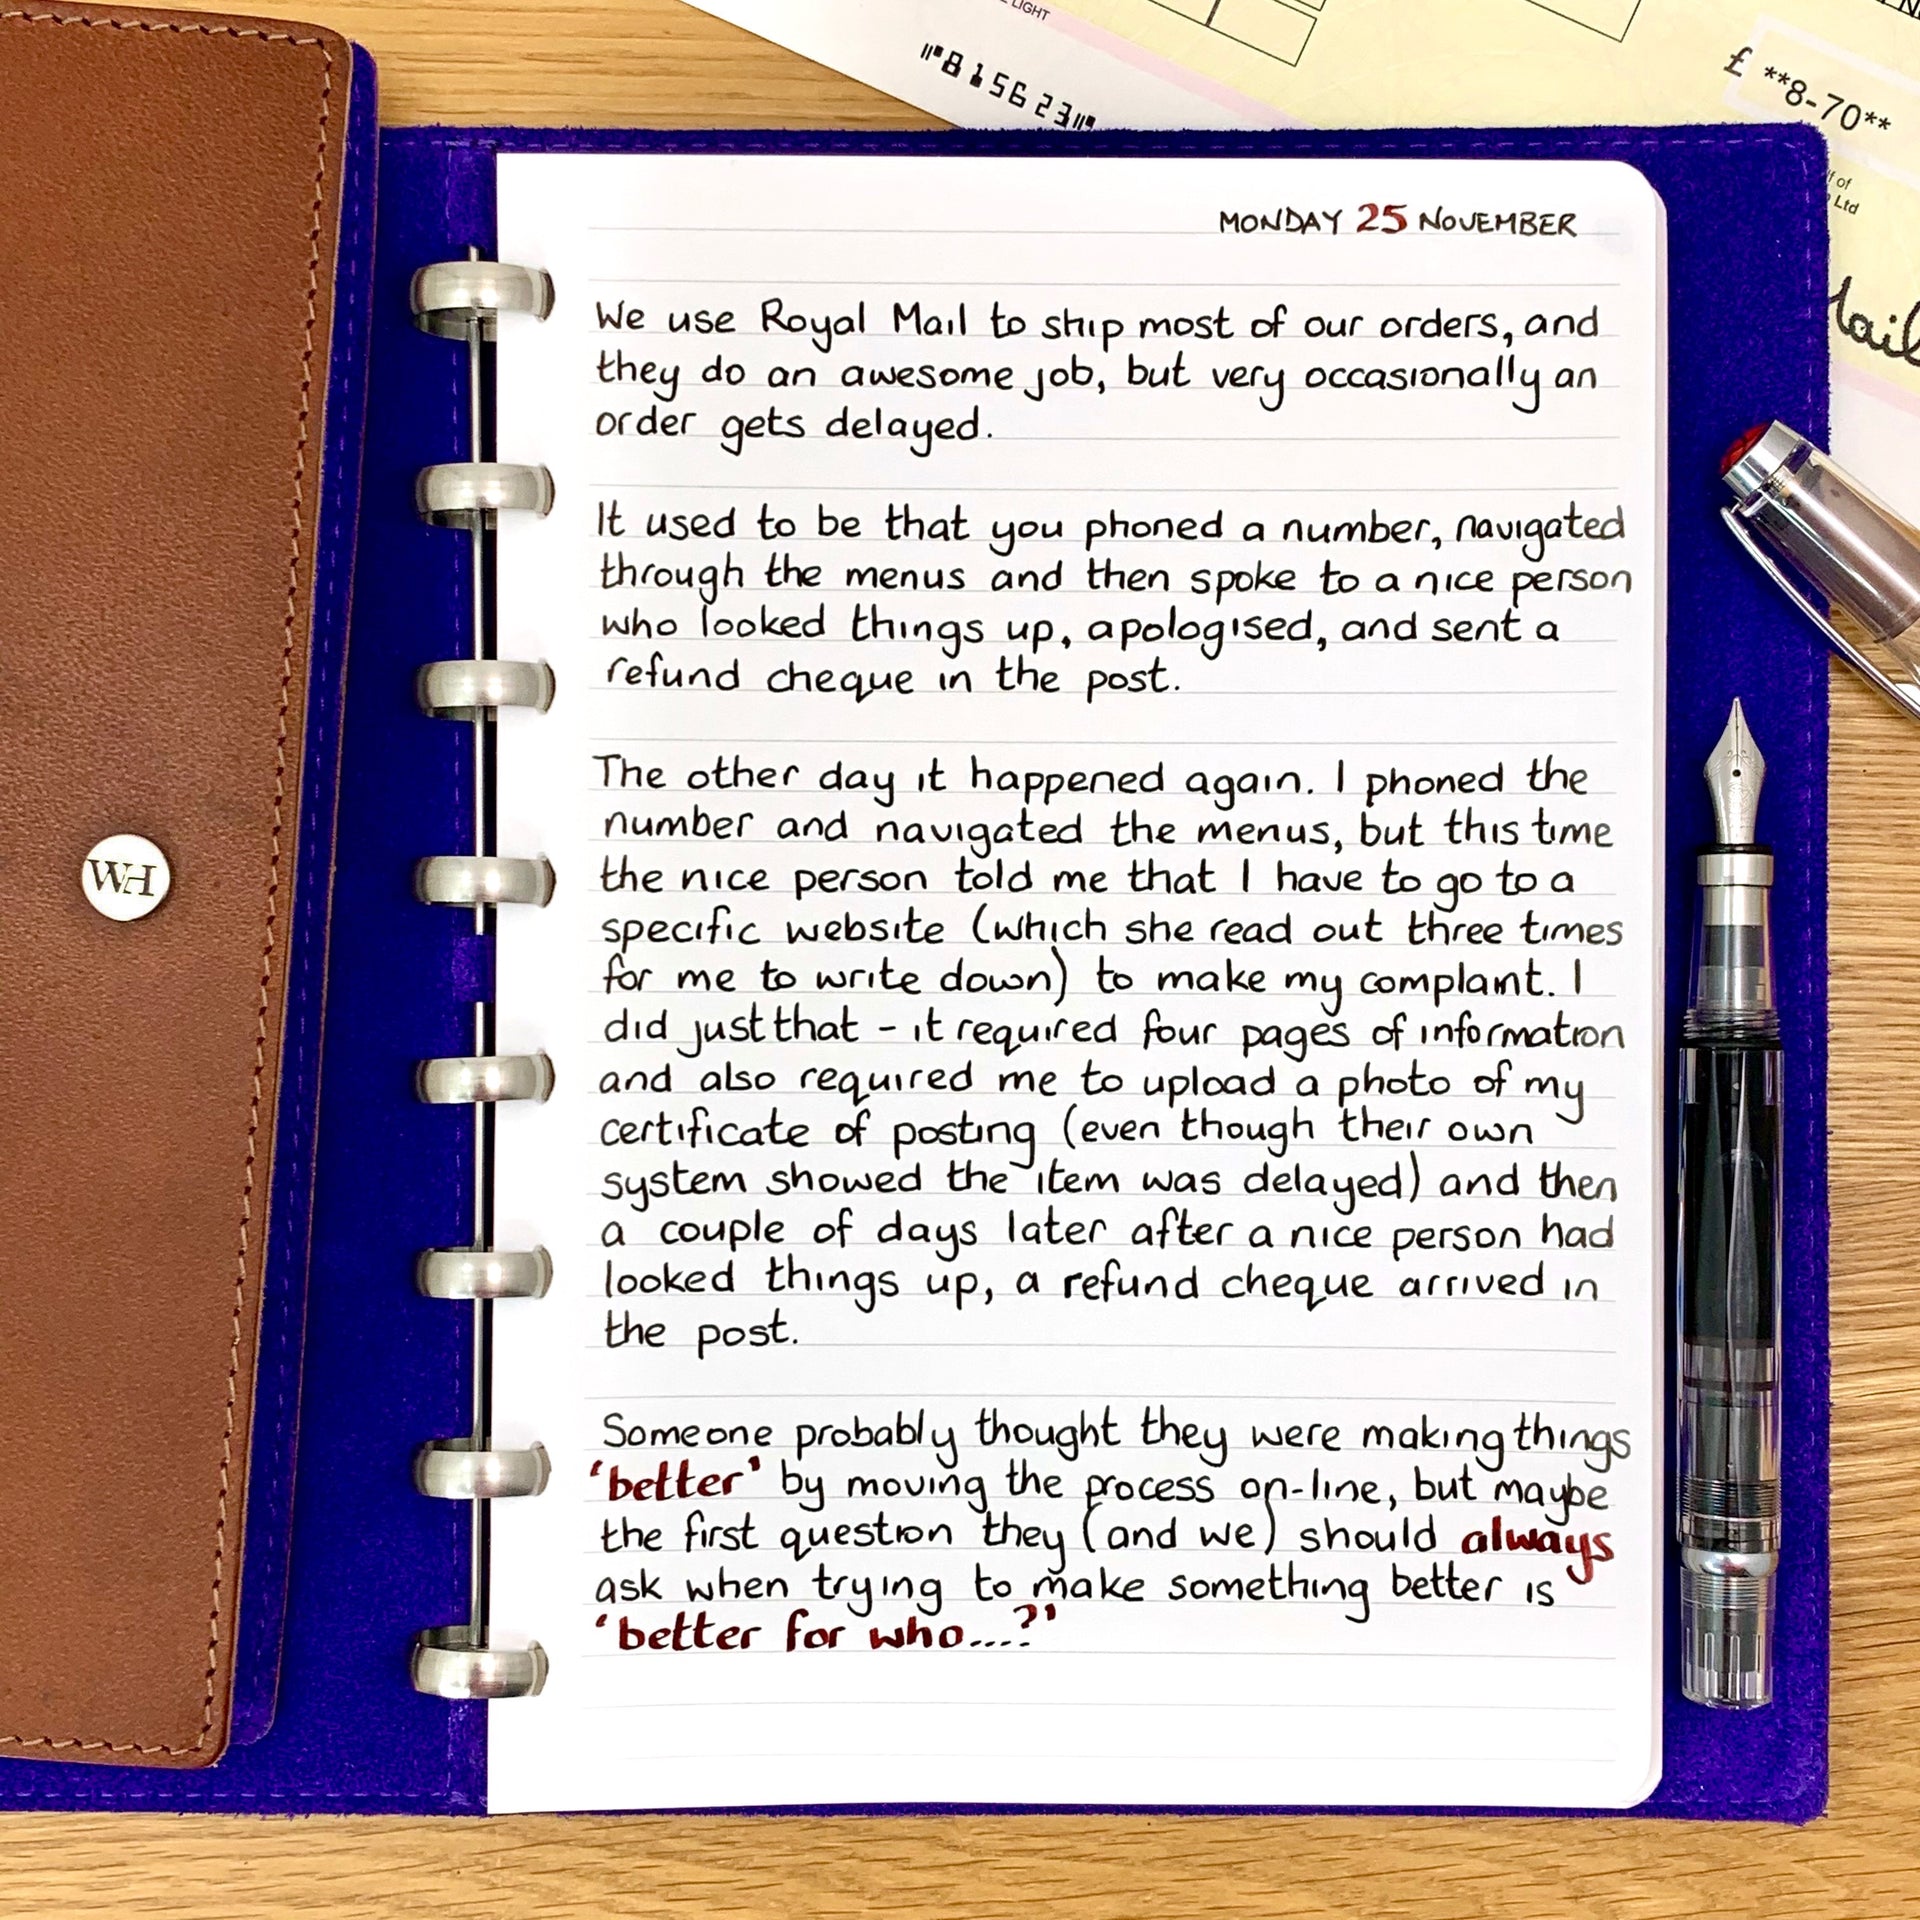 LIGHT
⑈815623⑈
£ **8-70**
lf of
Ltd
WH
MONDAY 25 NOVEMBER
We use Royal Mail to ship most of our orders, and
they do an awesome job, but very occasionally an
order gets delayed.
It used to be that you phoned a number, navigated
through the menus and then spoke to a nice person
who looked things up, apologised, and sent a
refund cheque in the post.
The other day it happened again. I phoned the
number and navigated the menus, but this time
the nice person told me that I have to go to a
specific website (which she read out three times
for me to write down) to make my complaint. I
did just that - it required four pages of information
and also required me to upload a photo of my
certificate of posting (even though their own
system showed the item was delayed) and then
a couple of days later after a nice person had
looked things up, a refund cheque arrived in
the post.
Someone probably thought they were making things
'better' by moving the process on-line, but maybe
the first question they (and we) should always
ask when trying to make something better is
'better for who...?'